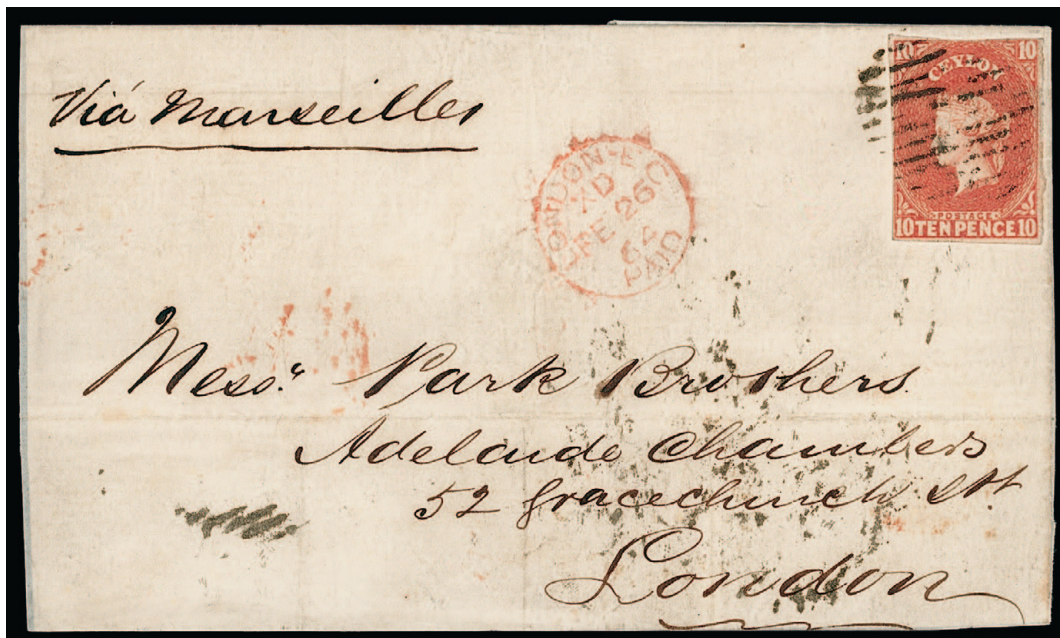 Viá Marseilles
10 CEYLON 10
POSTAGE
10 TEN PENCE 10
LONDON-E.C
FE 26
64
PAID
Messrs Park Brothers
Adelaide Chambers
52 Gracechurch Stt
London